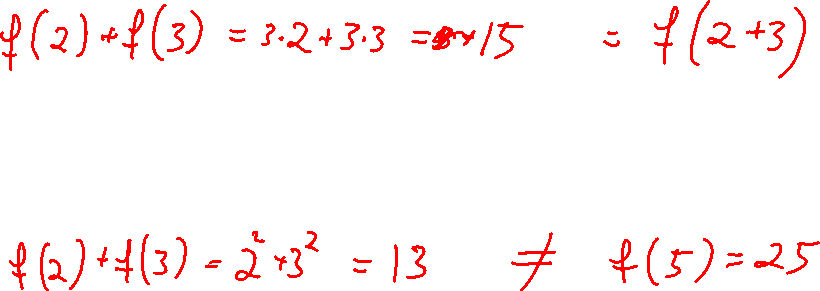 f(2)+f(3) = 3·2+3·3 = 15 = f(2+3)
f(2)+f(3) = 2²+3² = 13 ≠ f(5)=25